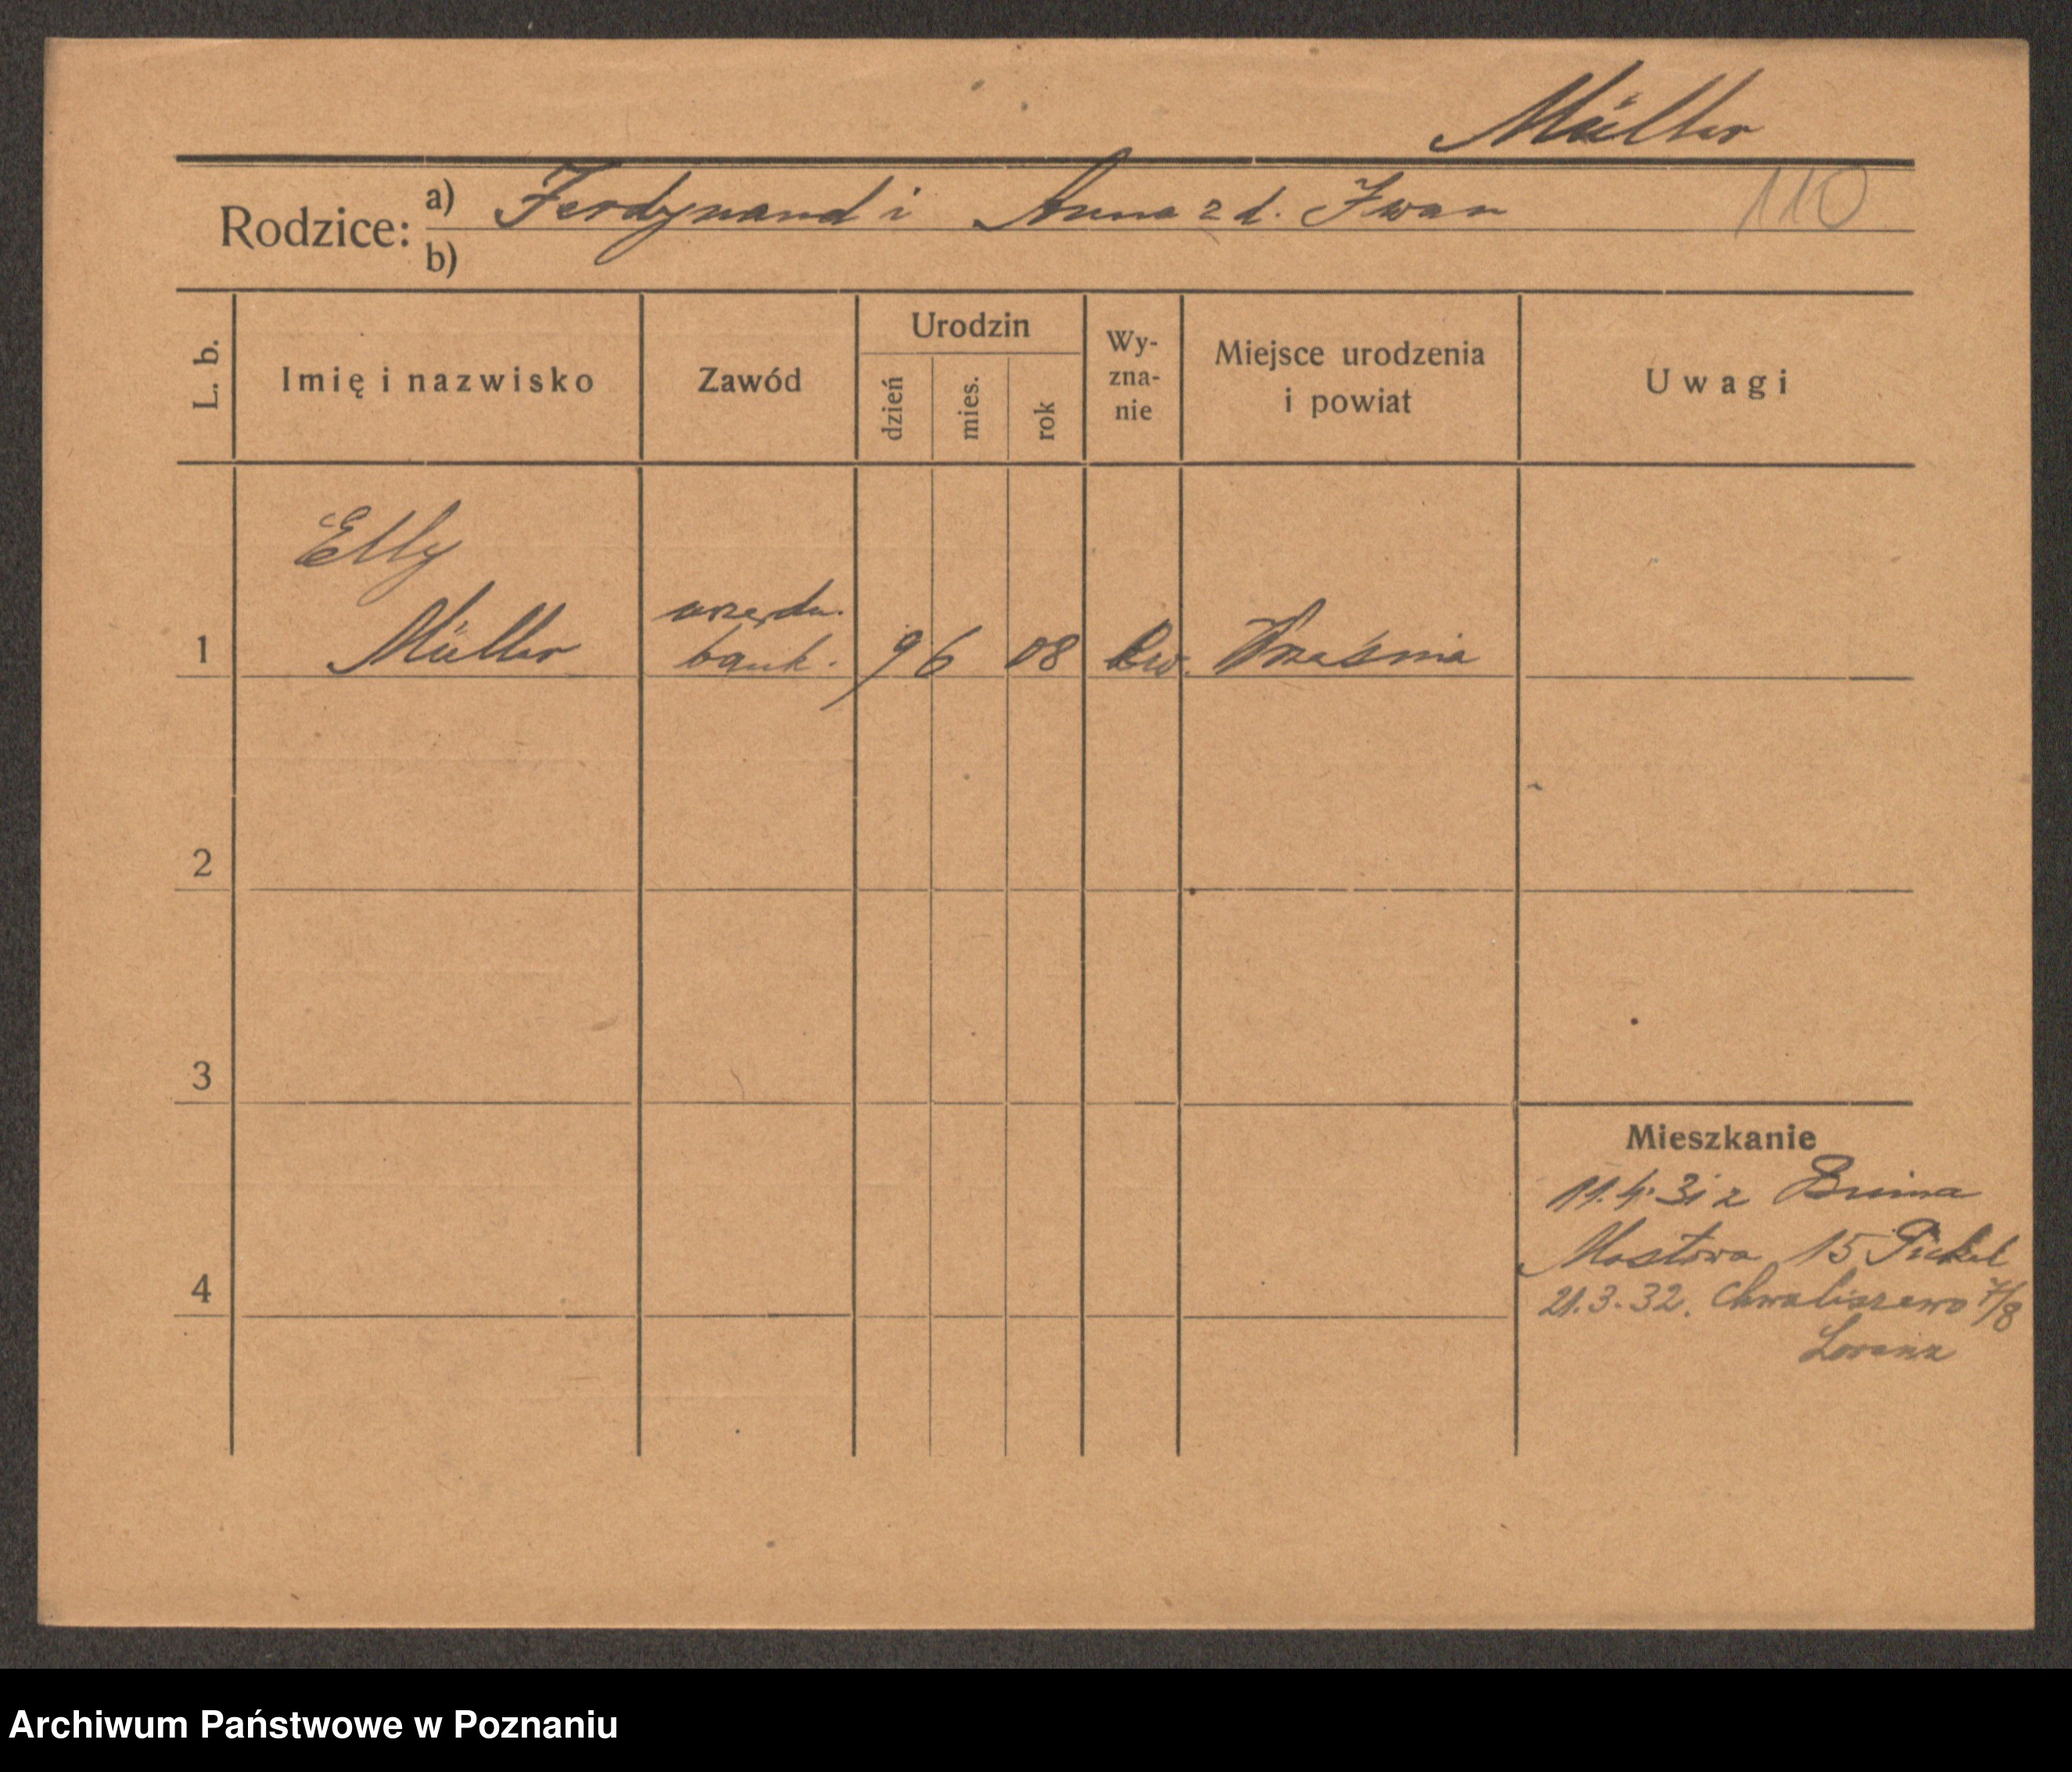 Müller
Rodzice: a) Ferdynand i Anna z d. Iwan 110
b)
L. b. Imię i nazwisko Zawód Urodzin dzień mies. rok Wy-zna-nie Miejsce urodzenia i powiat Uwagi
Elly
urzędn.
1 Müller bank. 9 6 08 Ew. Września
2
3
Mieszkanie
11.4.31 z Bnina
Mostowa 15
4 21.3.32. Chwaliszewo 7/8
Lorenz
Archiwum Państwowe w Poznaniu